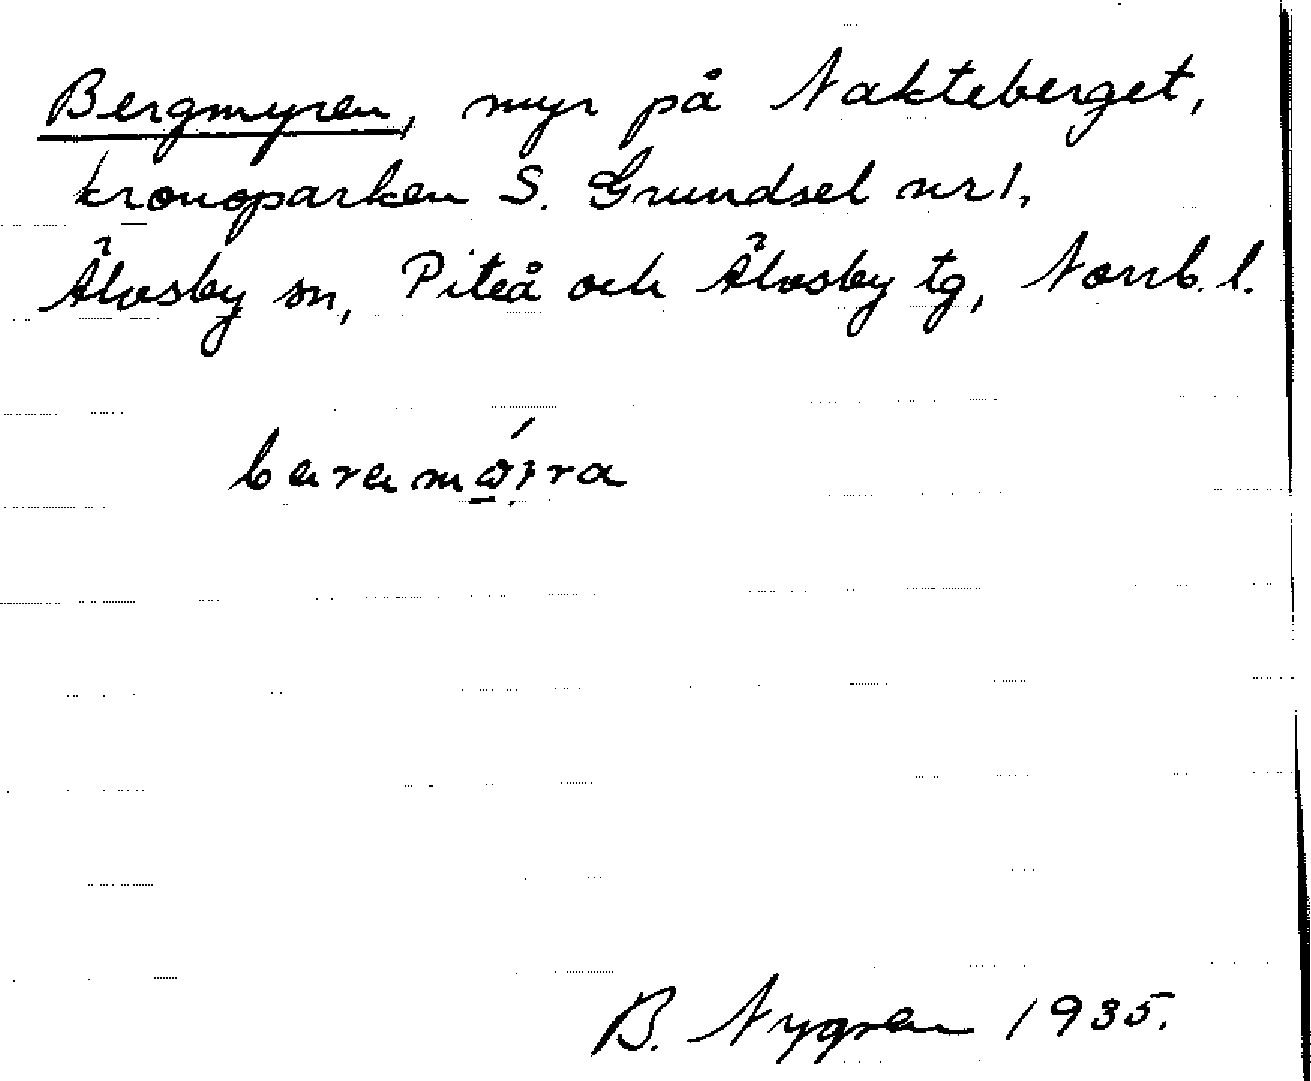 Bergmyren, myr på Nakteberget,
kronoparken S. Grundsel nr 1,
Älvsby sn, Piteå och Älvsby tg, Norrb. l.
B. Nygren 1935.